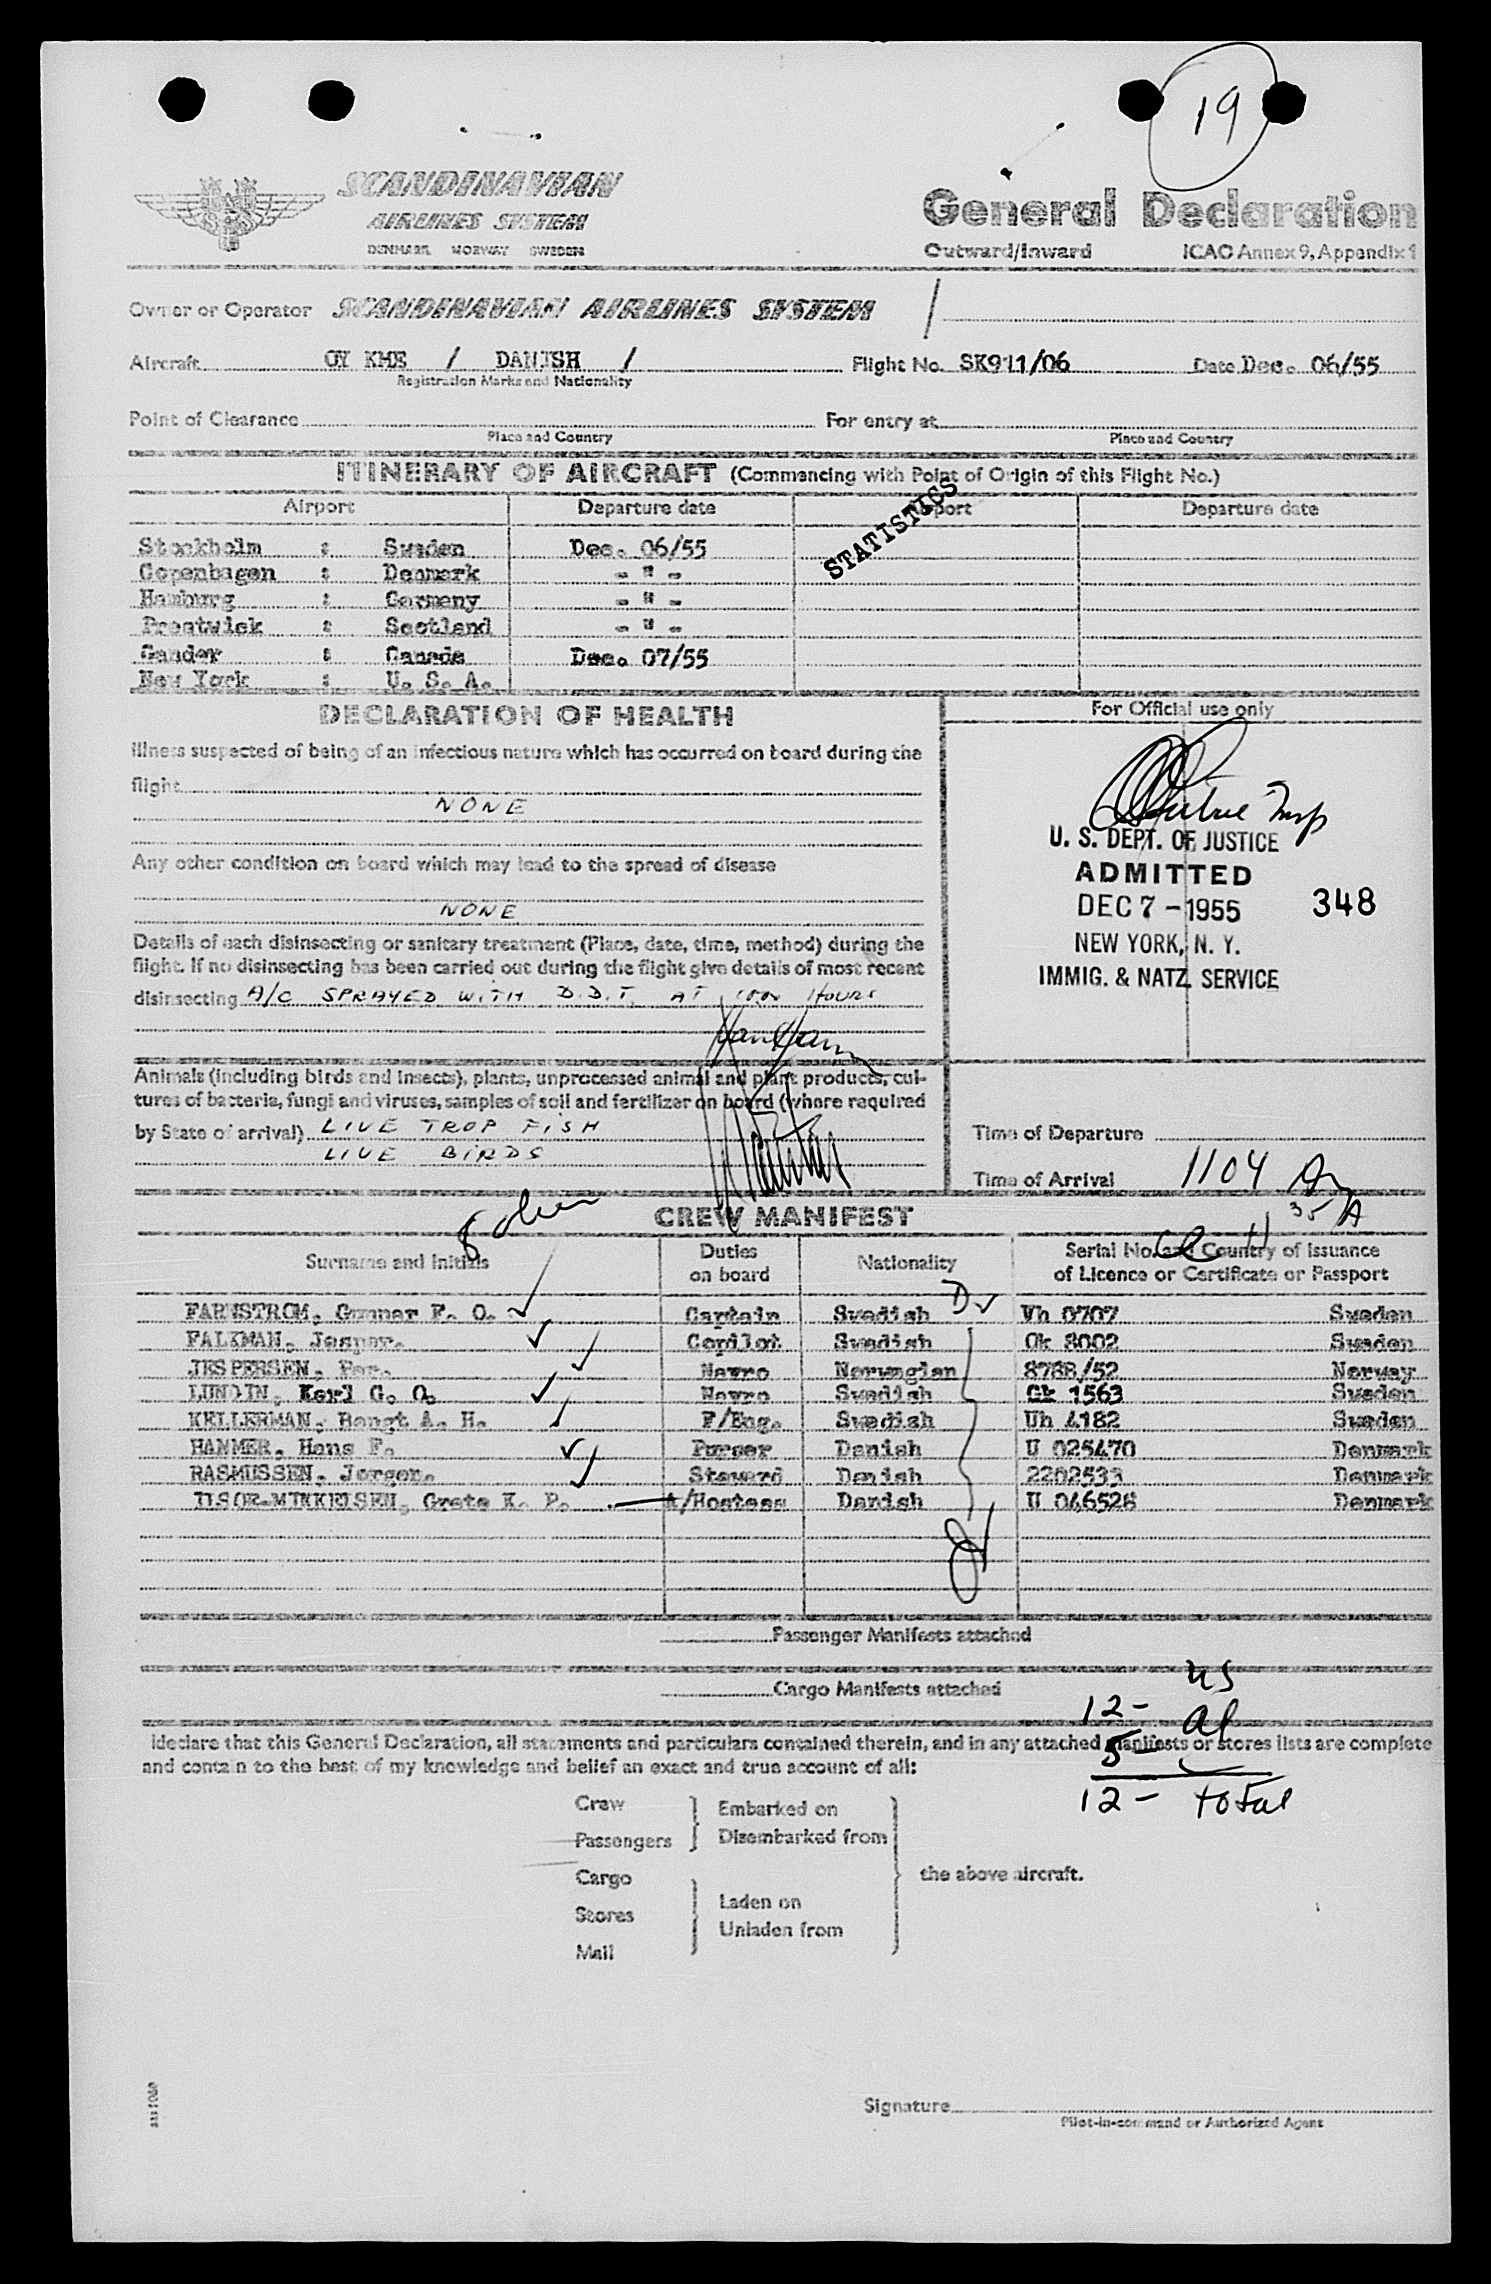 19
SCANDINAVIAN
AIRLINES SYSTEM
DENMARK NORWAY SWEDEN
General Declaration
Outward/Inward ICAO Annex 9, Appendix 1
Owner or Operator SCANDINAVIAN AIRLINES SYSTEM /
Aircraft OY KME / DANISH / Flight No. SK911/06 Date Dec. 06/55
Registration Marks and Nationality
Point of Clearance For entry at
Place and Country Place and Country
ITINERARY OF AIRCRAFT (Commencing with Point of Origin of this Flight No.)
Airport Departure date Airport Departure date
STATISTICS
Stockholm : Sweden Dec. 06/55
Copenhagen : Denmark - " -
Hamburg : Germany - " -
Prestwick : Scotland - " -
Gander : Canada Dec. 07/55
New York : U. S. A.
DECLARATION OF HEALTH
For Official use only
Illness suspected of being of an infectious nature which has occurred on board during the
flight
NONE
Any other condition on board which may lead to the spread of disease
NONE
Details of each disinsecting or sanitary treatment (Place, date, time, method) during the
flight. If no disinsecting has been carried out during the flight give details of most recent
disinsecting A/C SPRAYED WITH D.D.T. AT HOURS
U. S. DEPT. OF JUSTICE
ADMITTED
DEC 7 - 1955 348
NEW YORK, N. Y.
IMMIG. & NATZ. SERVICE
Animals (including birds and insects), plants, unprocessed animal and plant products, cul-
tures of bacteria, fungi and viruses, samples of soil and fertilizer on board (where required
by State of arrival) LIVE TROP FISH
LIVE BIRDS
Time of Departure
Time of Arrival 1104 Am
35 A
CREW MANIFEST
Surname and Initials Duties on board Nationality Serial No. and Country of Issuance of Licence or Certificate or Passport
FARNSTROM, Gunnar F. O. Captain Swedish Vh 0707 Sweden
FALKMAN, Jesper. Copilot Swedish Ok 8002 Sweden
JESPERSEN, Per. Navro Norwegian 8788/52 Norway
LUNDIN, Karl G. O. Navro Swedish Gk 1563 Sweden
KELLERMAN, Bengt A. H. F/Eng. Swedish Uh 4182 Sweden
HAMMER, Hans F. Purser Danish U 025470 Denmark
RASMUSSEN, Jorgen. Steward Danish 2202533 Denmark
ILSOE-MIKKELSEN, Grete K. P. A/Hostess Danish U 046528 Denmark
Passenger Manifests attached
Cargo Manifests attached
12- US
5- al
12- total
I declare that this General Declaration, all statements and particulars contained therein, and in any attached manifests or stores lists are complete
and contain to the best of my knowledge and belief an exact and true account of all:
Crew
Passengers
Embarked on
Disembarked from
Cargo
Stores
Mail
Laden on
Unladen from
the above aircraft.
Signature
Pilot-in-command or Authorized Agent